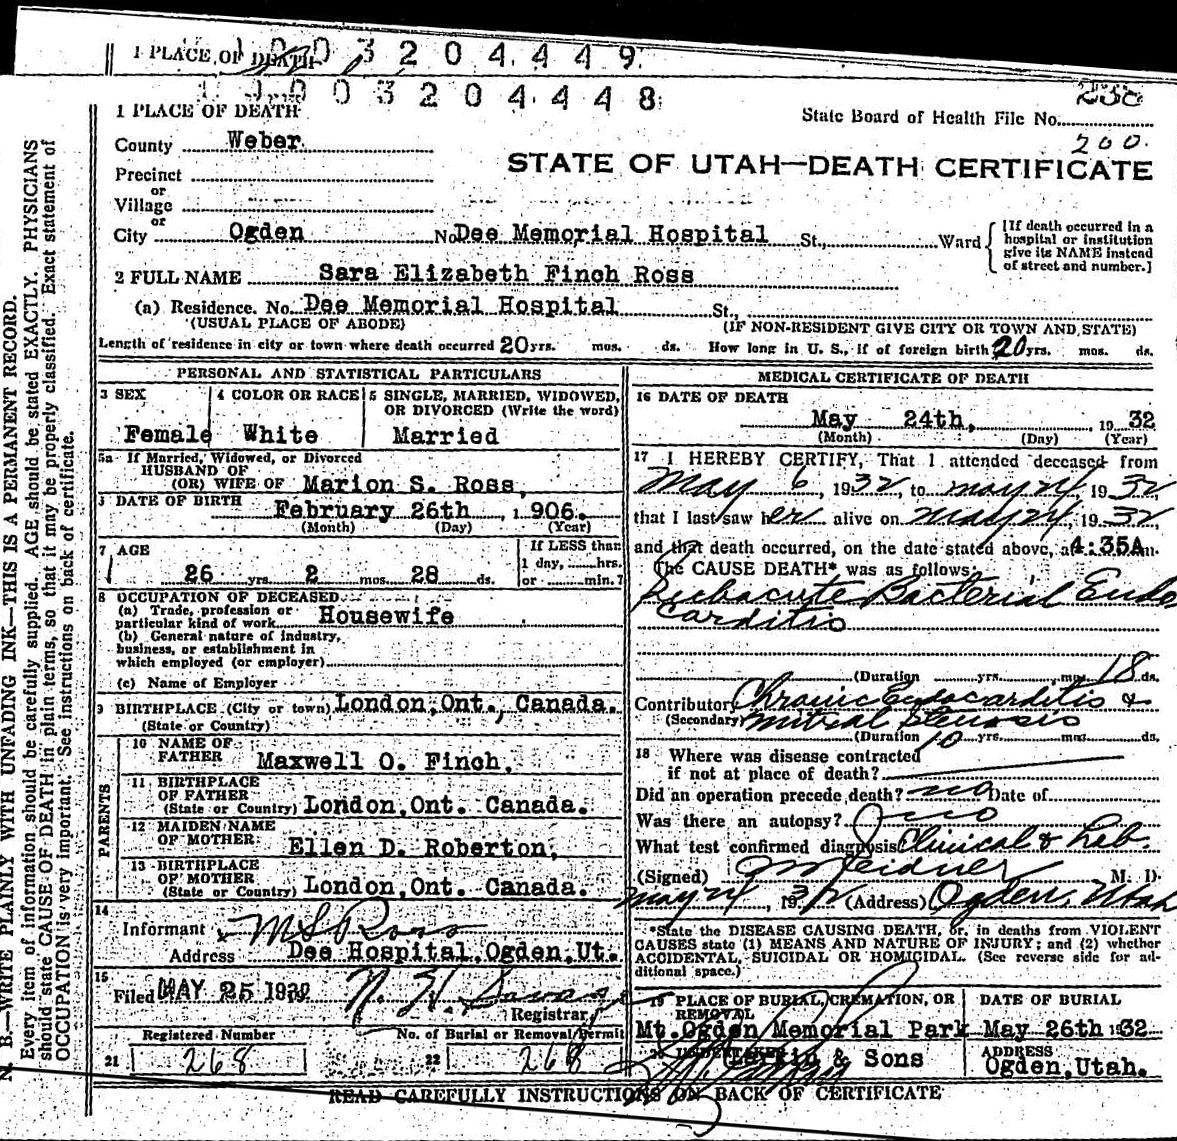 1 PLACE OF DEATH
1003204449
1003204448
1 PLACE OF DEATH
State Board of Health File No. 238
200
County Weber
STATE OF UTAH—DEATH CERTIFICATE
Precinct
or
Village
or
City Ogden No Dee Memorial Hospital St., Ward
[If death occurred in a
hospital or institution
give its NAME instead
of street and number.]
2 FULL NAME Sara Elizabeth Finch Ross
(a) Residence. No. Dee Memorial Hospital St.,
(USUAL PLACE OF ABODE) (IF NON-RESIDENT GIVE CITY OR TOWN AND STATE)
Length of residence in city or town where death occurred 20 yrs. mos. ds. How long in U. S., if of foreign birth 20 yrs. mos. ds.
PERSONAL AND STATISTICAL PARTICULARS
3 SEX 4 COLOR OR RACE 5 SINGLE, MARRIED, WIDOWED,
OR DIVORCED (Write the word)
Female White Married
5a If Married, Widowed, or Divorced
HUSBAND OF
(OR) WIFE OF Marion S. Ross,
DATE OF BIRTH February 26th, 1906.
(Month) (Day) (Year)
7 AGE If LESS than
1 day, hrs.
26 yrs. 2 mos. 28 ds. or min.?
8 OCCUPATION OF DECEASED
(a) Trade, profession or
particular kind of work Housewife
(b) General nature of industry,
business, or establishment in
which employed (or employer)
(c) Name of Employer
9 BIRTHPLACE (City or town) London, Ont., Canada.
(State or Country)
PARENTS
10 NAME OF
FATHER Maxwell O. Finch.
11 BIRTHPLACE
OF FATHER
(State or Country) London, Ont. Canada.
12 MAIDEN NAME
OF MOTHER Ellen D. Roberton,
13 BIRTHPLACE
OF MOTHER
(State or Country) London, Ont. Canada.
14
Informant M S Ross
Address Dee Hospital, Ogden, Ut.
15
Filed MAY 25 19
Registrar
Registered Number No. of Burial or Removal Permit
21 268 22 268
MEDICAL CERTIFICATE OF DEATH
16 DATE OF DEATH
May 24th, 1932
(Month) (Day) (Year)
17 I HEREBY CERTIFY, That I attended deceased from
May 6, 1932, to May 24, 1932,
that I last saw her alive on May 24, 1932,
and that death occurred, on the date stated above, at 4:35A m.
The CAUSE DEATH* was as follows:
Subacute Bacterial Endo
carditis
(Duration yrs. mos. 18 ds.
Contributory Chronic Endocarditis &
(Secondary) mitral stenosis
(Duration 10 yrs. mos. ds.
18 Where was disease contracted
if not at place of death?
Did an operation precede death? no Date of
Was there an autopsy? no
What test confirmed diagnosis Clinical & Lab.
(Signed) M. D.
May 24, 1932 (Address) Ogden, Utah
*State the DISEASE CAUSING DEATH, or, in deaths from VIOLENT
CAUSES state (1) MEANS AND NATURE OF INJURY; and (2) whether
ACCIDENTAL, SUICIDAL OR HOMICIDAL. (See reverse side for ad-
ditional space.)
19 PLACE OF BURIAL, CREMATION, OR DATE OF BURIAL
REMOVAL
Mt. Ogden Memorial Park May 26th 1932
20 UNDERTAKER & Sons ADDRESS
Ogden, Utah.
READ CAREFULLY INSTRUCTIONS ON BACK OF CERTIFICATE
N. B.—WRITE PLAINLY WITH UNFADING INK—THIS IS A PERMANENT RECORD.
Every item of information should be carefully supplied. AGE should be stated EXACTLY. PHYSICIANS
should state CAUSE OF DEATH in plain terms, so that it may be properly classified. Exact statement of
OCCUPATION is very important. See instructions on back of certificate.